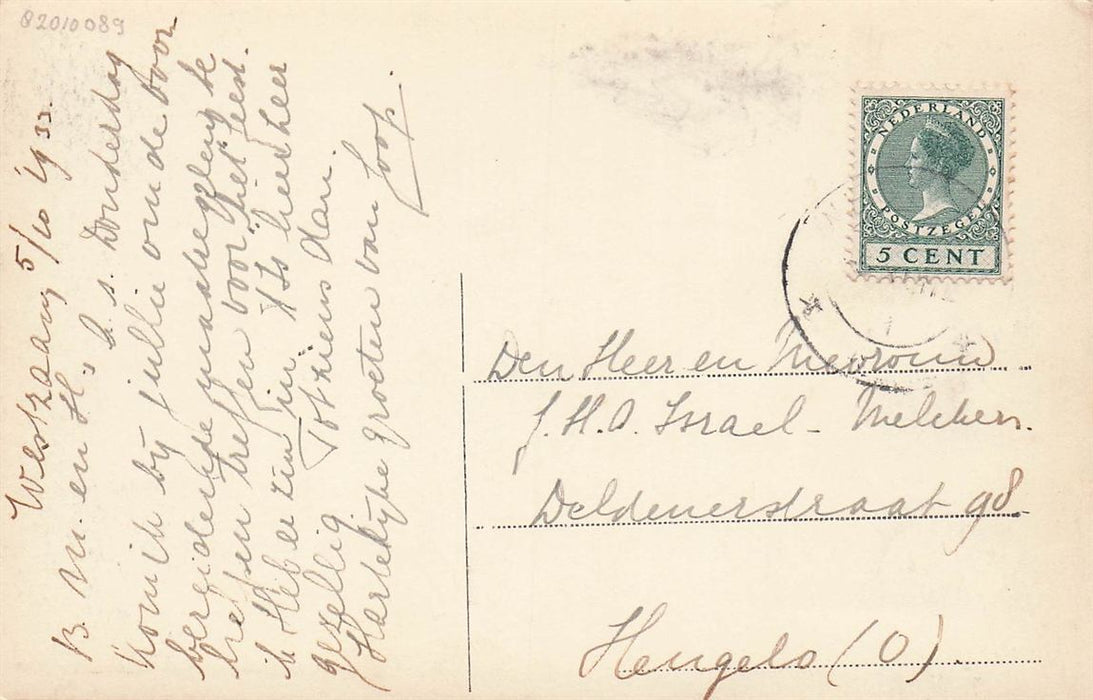 82010089
Westzaan 5/10 1933.
B. M. en H., A.s. Donderdag
kom ik bij jullie om de voor
bereidende maatregelen te
treffen voor het feest.
ik Heb er zin in. Is hier heer
gezellig Tot ziens dan.
Hartelijke groeten van
Joop.
NEDERLAND
POSTZEGEL
5 CENT
Den Heer en Mevrouw
J. H. O. Israel - Melchers.
Deldenerstraat 98.
Hengelo (O).